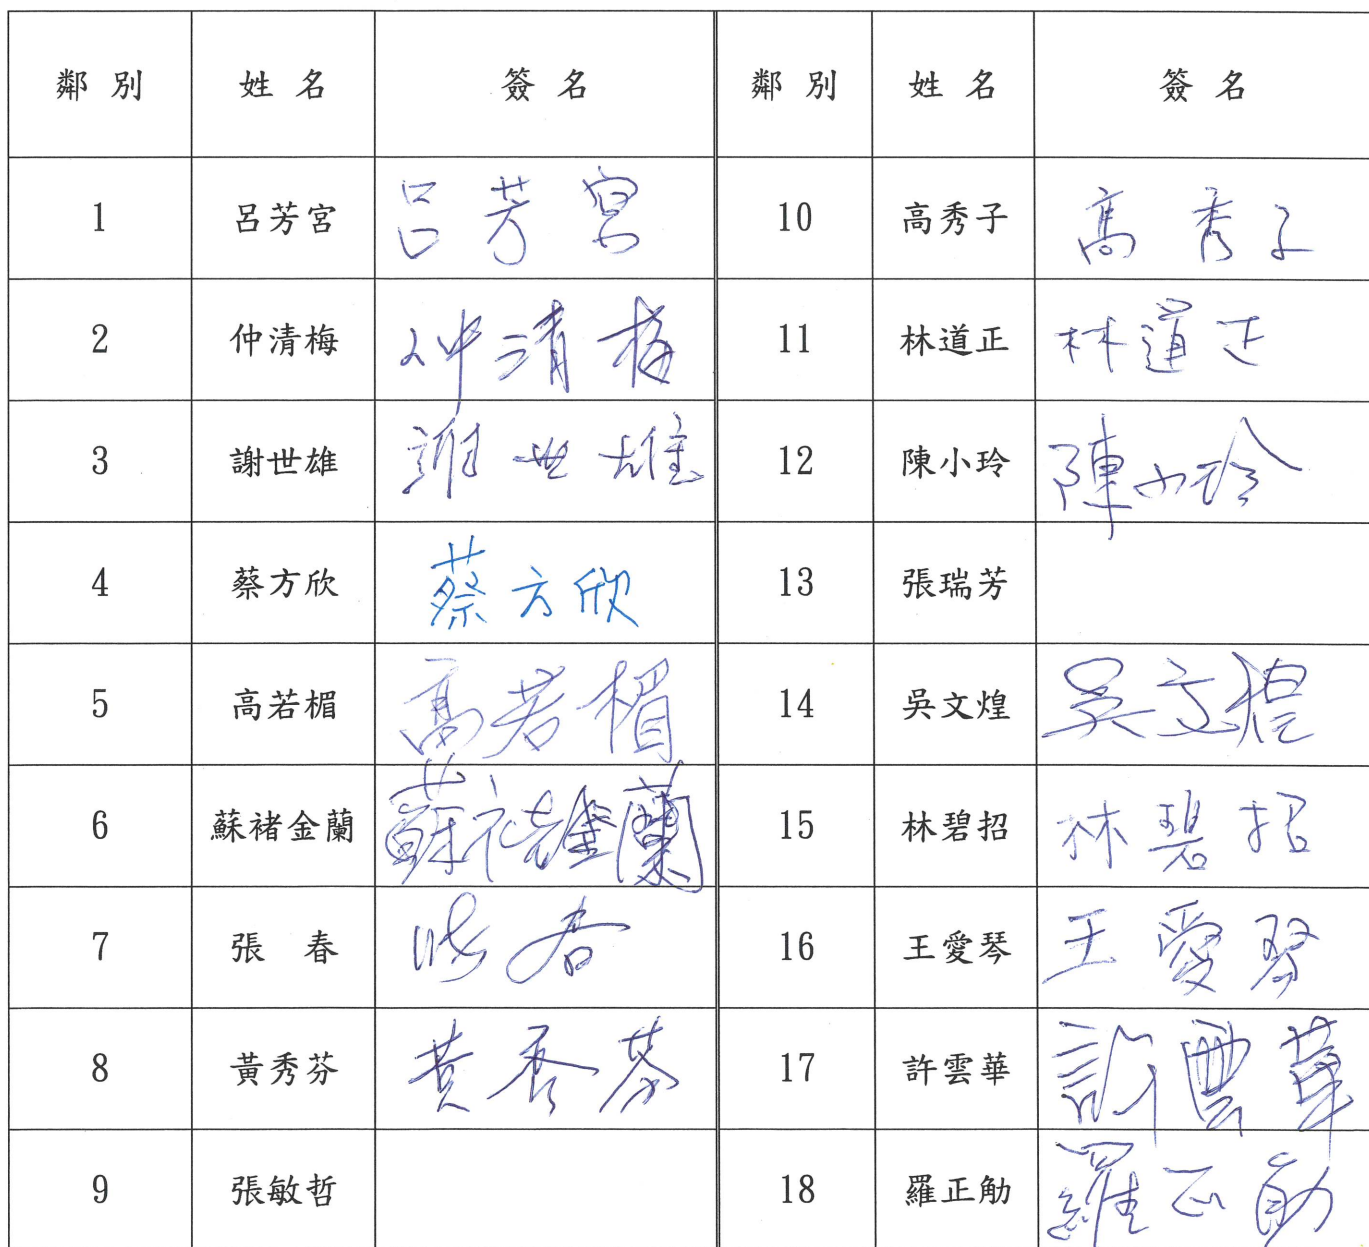 鄰別 姓名 簽名 鄰別 姓名 簽名
1 呂芳宮 呂芳宮 10 高秀子 高秀子
2 仲清梅 仲清梅 11 林道正 林道正
3 謝世雄 謝世雄 12 陳小玲 陳小玲
4 蔡方欣 蔡方欣 13 張瑞芳
5 高若楣 高若楣 14 吳文煌 吳文煌
6 蘇褚金蘭 蘇褚金蘭 15 林碧招 林碧招
7 張 春 張春 16 王愛琴 王愛琴
8 黃秀芬 黃秀芬 17 許雲華 許雲華
9 張敏哲 18 羅正勛 羅正勛